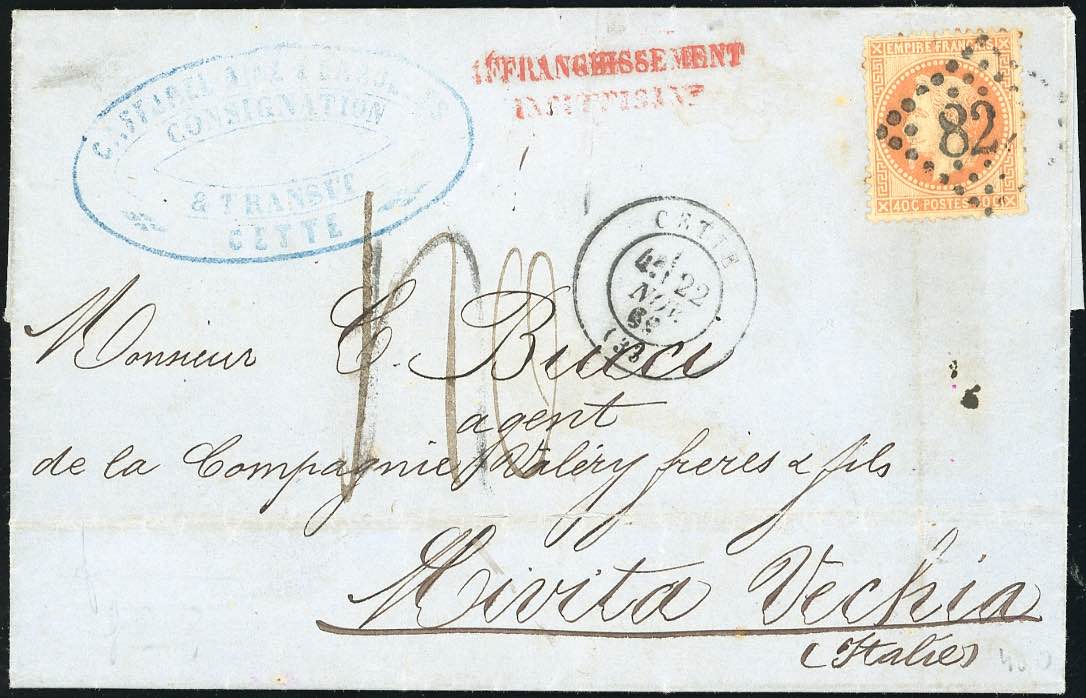 CONSIGNATION
& TRANSIT
CETTE
AFFRANCHISSEMENT
INSUFFISANT
EMPIRE FRANÇAIS
82
40C POSTES 40C
CETTE
22
NOV.
69
(33)
Monsieur C. Bucci
agent
de la Compagnie Valéry freres & fils
Civita Vechia
(Italie)